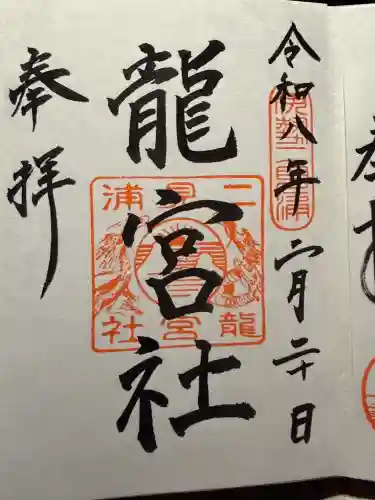 令和八年六月二十日
伊勢二見浦
龍宮社
二見浦
龍宮社
奉拝